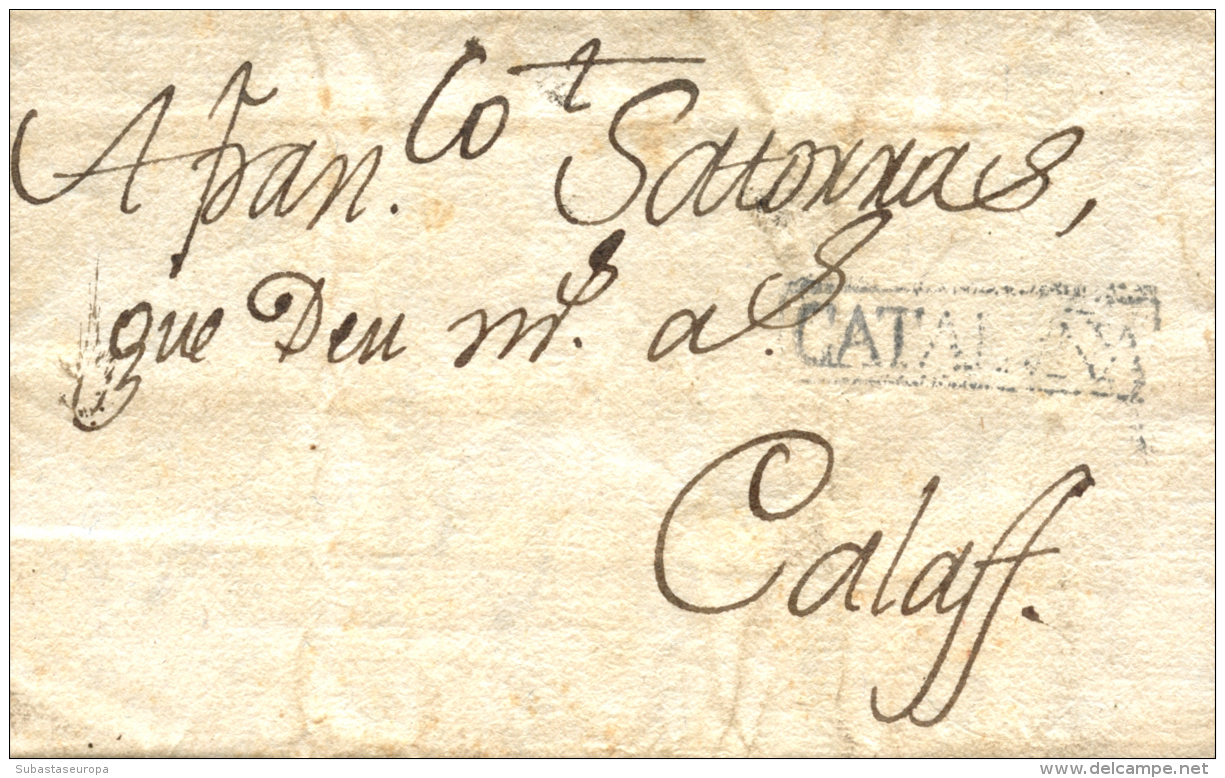 A fran.co t Satorras,
que Deu m.s a.s
CATALUÑA
Calaff.
Subastaseuropa
www.delcampe.net